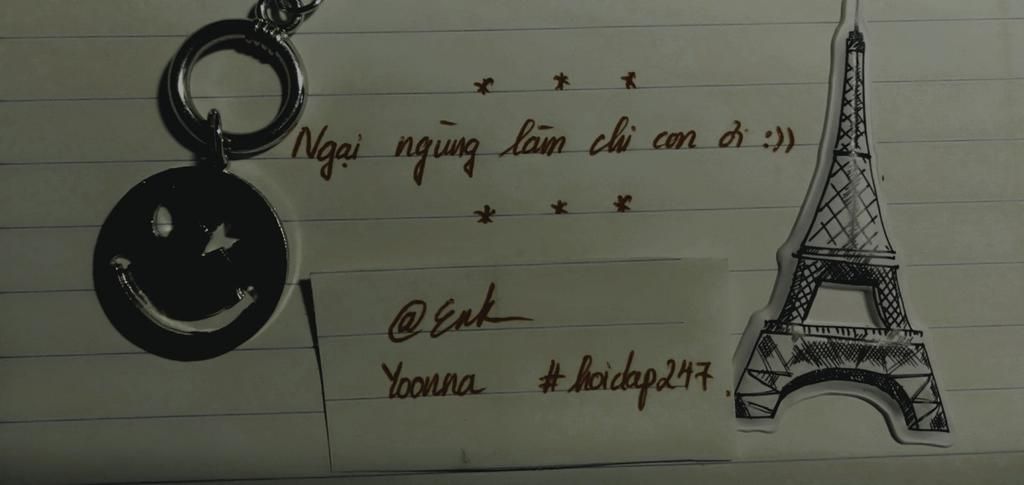 * * *
Ngại ngùng làm chi con ơi :))
* * *
@Enk
Yoonna #hoidap247.